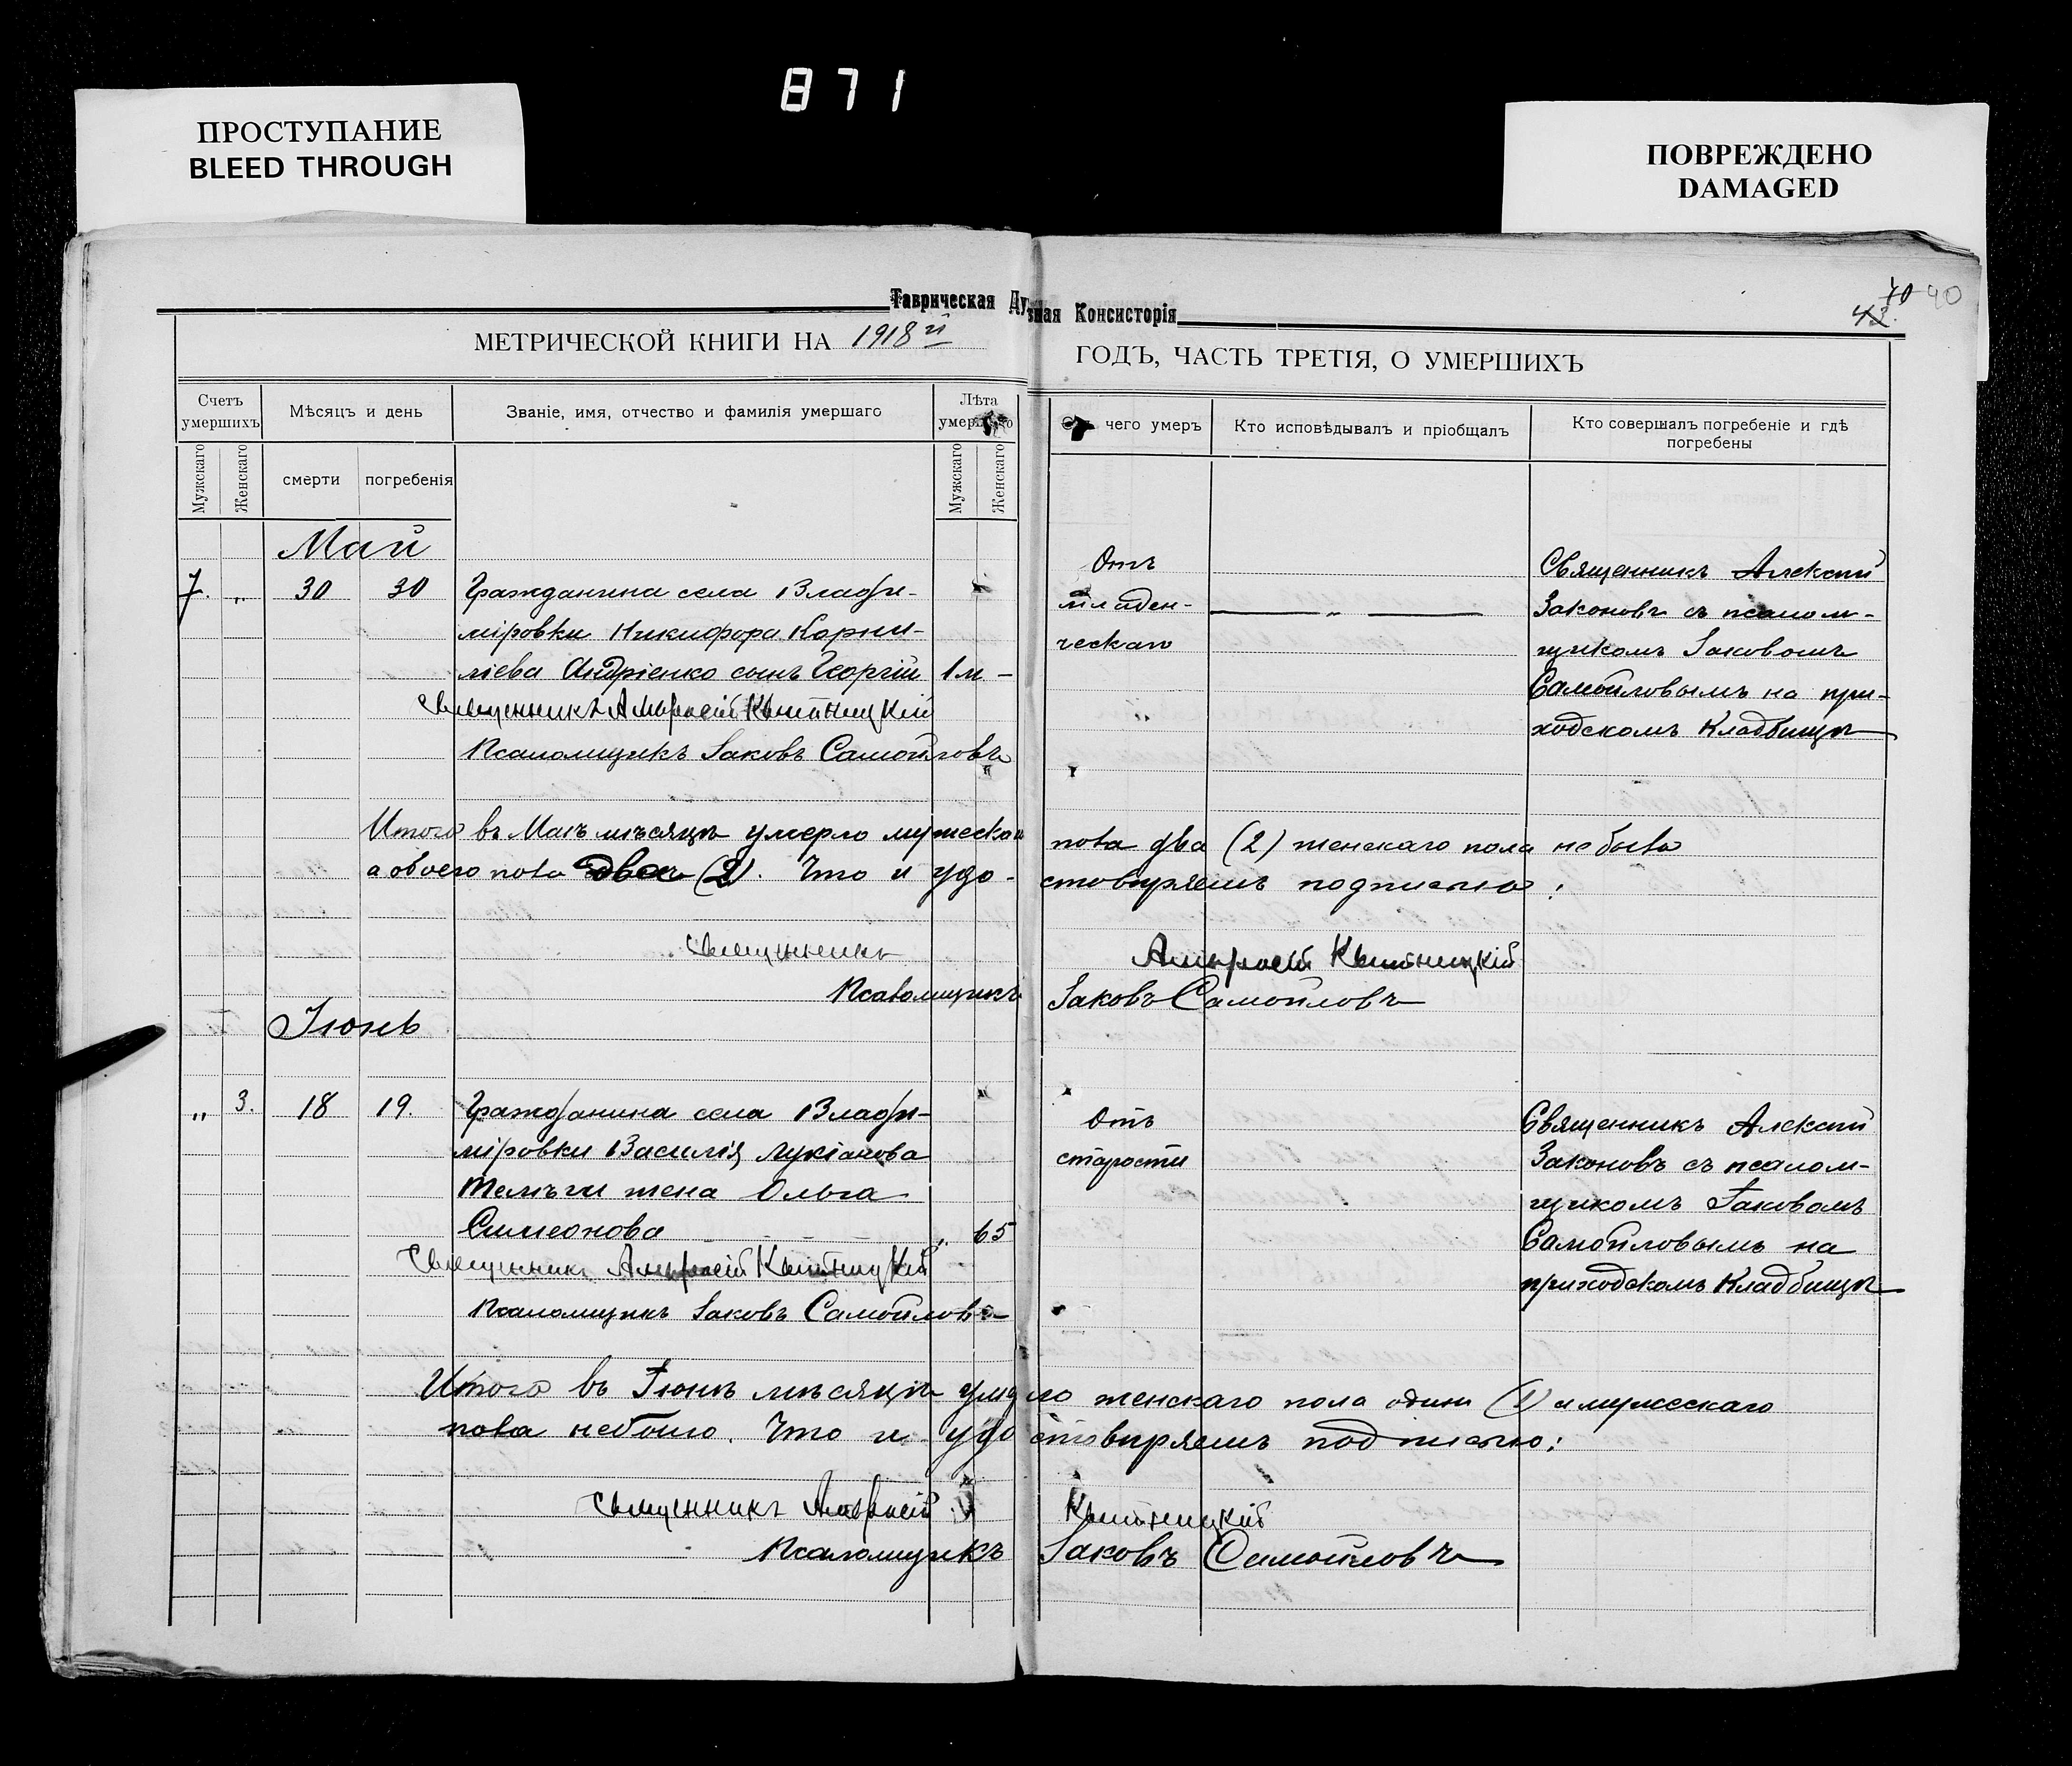 871
ПРОСТУПАНИЕ
BLEED THROUGH
ПОВРЕЖДЕНО
DAMAGED
Таврическая Духовная Консисторія
40 90
43.
МЕТРИЧЕСКОЙ КНИГИ НА 1918 й ГОДЪ, ЧАСТЬ ТРЕТІЯ, О УМЕРШИХЪ
Счетъ умершихъ
Мѣсяцъ и день
Званіе, имя, отчество и фамилія умершаго
Лѣта умершаго
Отъ чего умеръ
Кто исповѣдывалъ и пріобщалъ
Кто совершалъ погребеніе и гдѣ погребены
Мужскаго
Женскаго
смерти
погребенія
Мужскаго
Женскаго
Май
7. „ 30 30
Гражданина села Влади-
міровки Никифора Корни-
ліева Андріенко сынъ Георгій 1 м –
Священникъ Амвросій
Псаломщикъ Іаковъ Самойловъ
Отъ
младен-
ческаго
— „ —
Священникъ Алексій
Законовъ съ псалом-
щикомъ Іаковомъ
Самойловымъ на при-
ходскомъ кладбищѣ
Итого въ Маѣ мѣсяцѣ умерло мужеско пола два (2) женскаго пола не было
а обоего пола двое (2). Что и удо- стовѣряемъ подписью:
Священникъ Амвросій
Псаломщикъ Іаковъ Самойловъ
Іюнь
„ 3. 18 19.
Гражданина села Влади-
міровки Василія Лукіанова
жена Ольга
Симеонова „ 65
Священникъ Амвросій
Псаломщикъ Іаковъ Самойловъ
Отъ
старости
Священникъ Алексій
Законовъ съ псалом-
щикомъ Іаковомъ
Самойловымъ на
приходскомъ кладбищѣ
Итого въ Іюнѣ мѣсяцѣ умерло женскаго пола одинъ (1) а мужескаго
пола небыло. Что и удостовѣряемъ подписью:
Священникъ Амвросій
Псаломщикъ Іаковъ Самойловъ